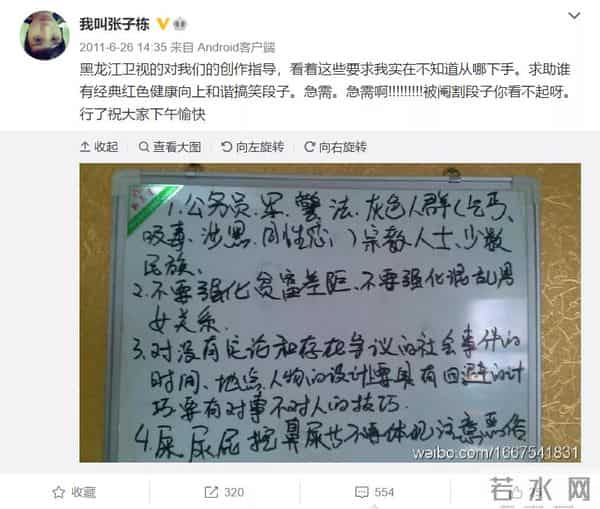 我叫张子栋
2011-6-26 14:35 来自 Android客户端
黑龙江卫视的对我们的创作指导，看着这些要求我实在不知道从哪下手。求助谁
有经典红色健康向上和谐搞笑段子。急需。急需啊!!!!!!!!!被阉割段子你看不起呀。
行了祝大家下午愉快
收起 查看大图 向左旋转 向右旋转
1.公务员、军、警、法、灰色人群(乞丐、
吸毒、涉黑、同性恋、)宗教人士、少数
民族、
2.不要强化贫富差距、不要强化混乱男
女关系.
3.对没有定论和存在争议的社会事件的
时间、地点、人物的设计要具有回避的计
巧要有对事不对人的技巧.
4.屎尿屁挖鼻屎 不要体现 注意
weibo.com/1667541831
收藏 320 554
若水网